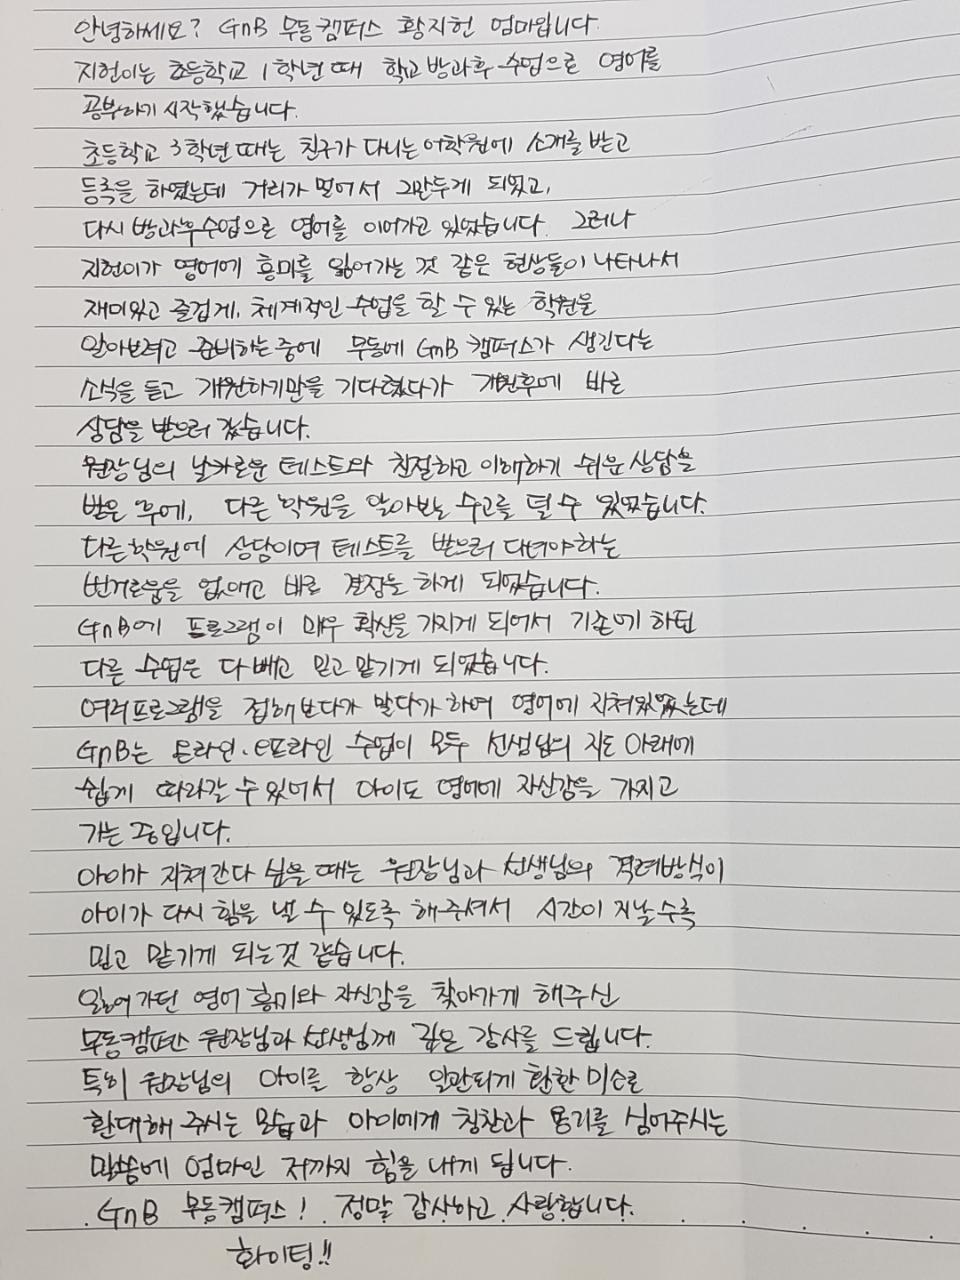 안녕하세요? GnB 무동캠퍼스 황지헌 엄마입니다.
지헌이는 초등학교 1학년 때 학교 방과후 수업으로 영어를
공부하기 시작했습니다.
초등학교 3학년 때는 친구가 다니는 어학원에 소개를 받고
등록을 하였는데 거리가 멀어서 그만두게 되었고,
다시 방과후수업으로 영어를 이어가고 있었습니다. 그러나
지헌이가 영어에 흥미를 잃어가는 것 같은 현상들이 나타나서
재미있고 즐겁게, 체계적인 수업을 할 수 있는 학원을
알아보려고 준비하는 중에 무동에 GnB 캠퍼스가 생긴다는
소식을 듣고 개원하기만을 기다렸다가 개원후에 바로
상담을 받으러 갔습니다.
원장님의 날카로운 테스트와 친절하고 이해하기 쉬운 상담을
받은 후에, 다른 학원을 알아보는 수고를 덜 수 있었습니다.
다른학원에 상담이며 테스트를 받으러 다녀야하는
번거로움을 없애고 바로 결정을 하게 되었습니다.
GnB에 프로그램이 매우 확신을 가지게 되어서 기존에 하던
다른 수업은 다 빼고 믿고 맡기게 되었습니다.
여러프로그램을 접해보다가 말다가 하여 영어에 지쳐있었는데
GnB는 온라인·오프라인 수업이 모두 선생님의 지도 아래에
쉽게 따라갈 수 있어서 아이도 영어에 자신감을 가지고
가는 중입니다.
아이가 지쳐간다 싶을 때는 원장님과 선생님의 격려방식이
아이가 다시 힘을 낼 수 있도록 해주셔서 시간이 지날수록
믿고 맡기게 되는것 같습니다.
잃어가던 영어 흥미와 자신감을 찾아가게 해주신
무동캠퍼스 원장님과 선생님께 깊은 감사를 드립니다.
특히 원장님의 아이를 항상 일관되게 환한 미소로
환대해 주시는 모습과 아이에게 칭찬과 용기를 심어주시는
말씀에 엄마인 저까지 힘을 내게 됩니다.
GnB 무동캠퍼스! 정말 감사하고 사랑합니다.
화이팅!!